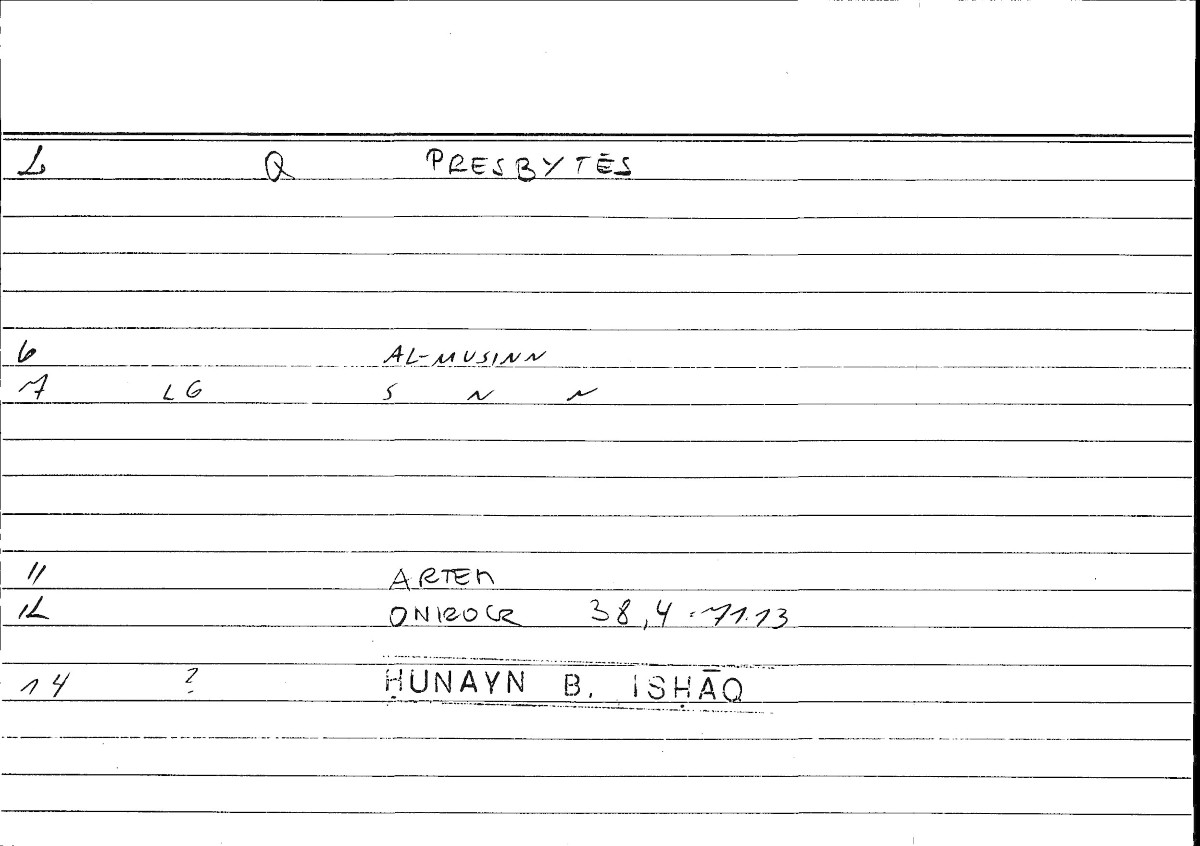 L Q PRESBYTĒS
6 AL-MUSINN
7 LG S N N
11 ARTEM
12 ONIROCR 38,4 · 71.13
14 ? ḤUNAYN B. ISḤĀQ